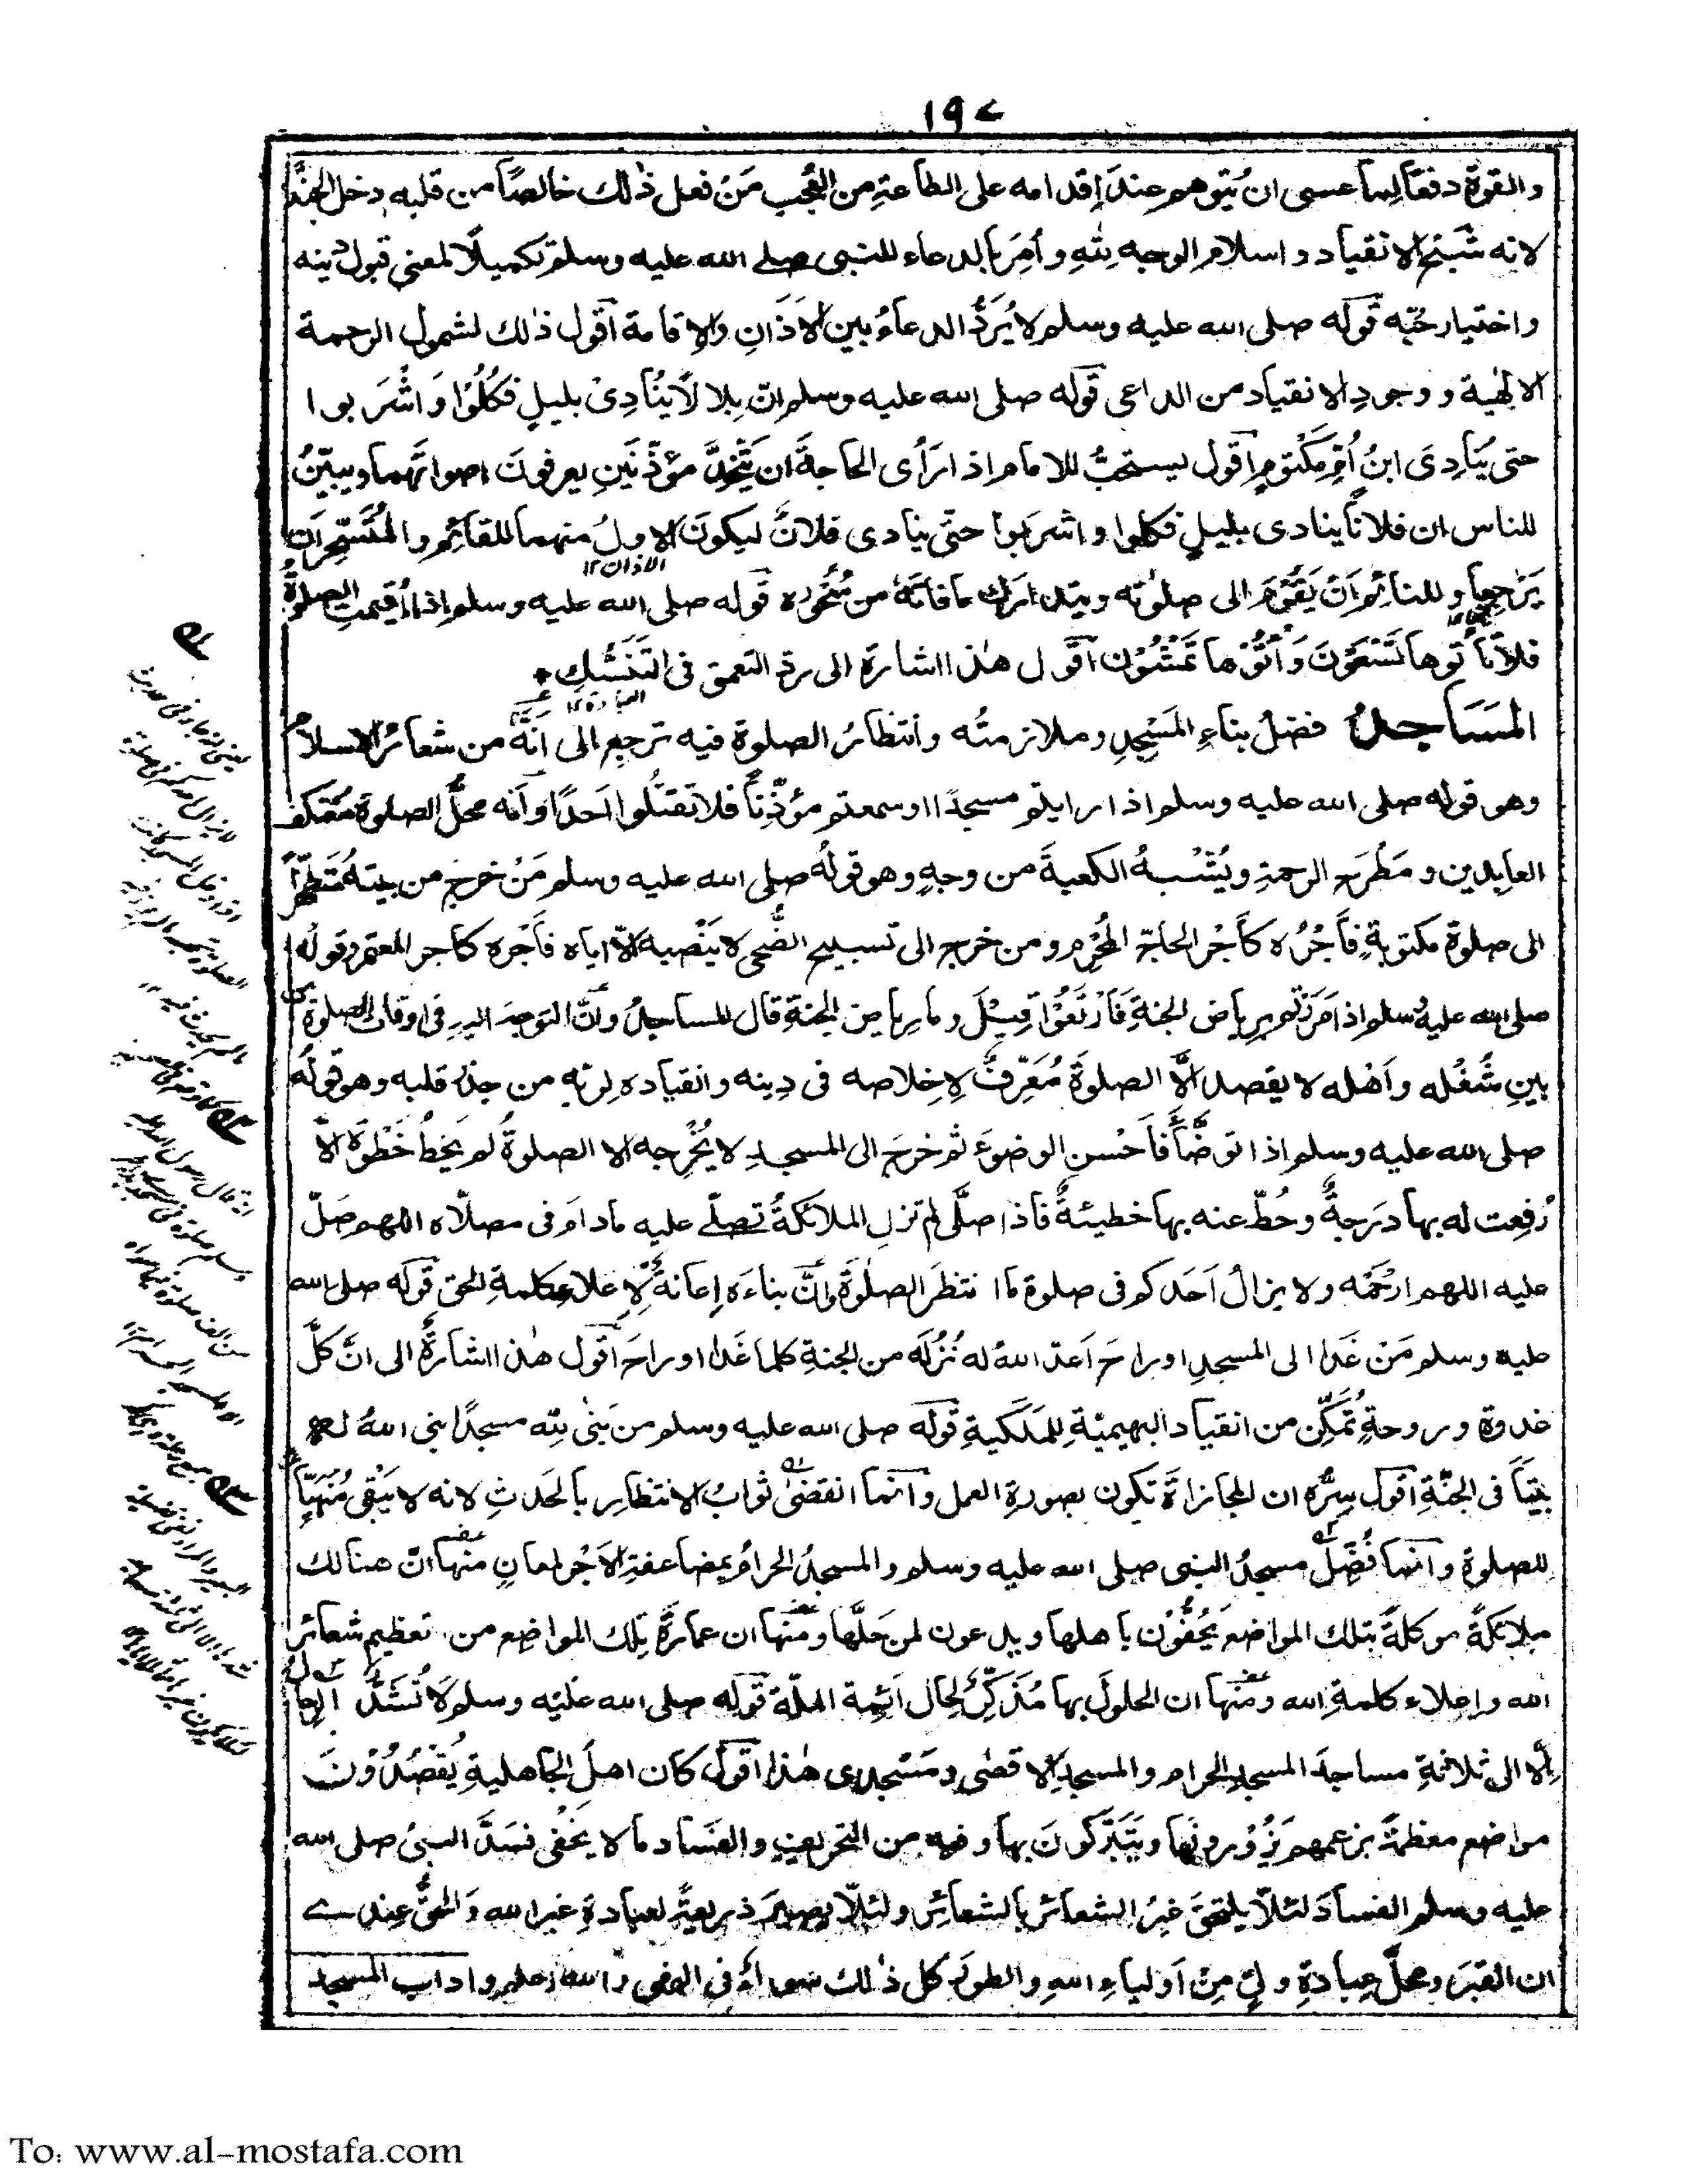 ١٩٧
والقوة دفعاً لما عسى ان يتوهم عند اقدامه على الطاعة من العجب من فعل ذلك خالصاً من قلبه دخل الجنة
لانه شبح الانقياد واسلام الوجه لله وأمر بالدعاء للنبي صلى الله عليه وسلم تكميلاً لمعنى قبول دينه
واختيار حبّه قوله صلى الله عليه وسلم لا يُرَدُّ الدعاءُ بين الاَذَانِ والاِقامة اقول ذلك لشمول الرحمة
الالٰهية ووجودِ الانقياد من الداعي قوله صلى الله عليه وسلم انّ بِلالاً يُنَادِىْ بليلٍ فَكُلُوْا وَاشْرَبوا
حتى يُنَادِىَ ابنُ اُمِّ مَكْتومٍ اقول يستحبُّ للامام اذا رَأى الحاجةَ ان يَتَّخِذَ مؤذّنَينِ يعرفونَ اصواتَهما ويبيّنُ
للناس ان فلاناً ينادى بليلٍ فكلوا واشربوا حتّى ينادى فلانٌ ليكونَ الاولُ منهما للقائمِ والمُتَسَحِّرِ ان
الاذان ١٢
يَرْجِعا وللنائمِ اَنْ يَقُوْمَ الى صلٰوته ويتدارك ما فاتَهٗ من سُحُوره قوله صلى الله عليه وسلم اذا اُقيمتِ الصلوةُ
فلا تأتوها تَسْعَوْنَ وَأْتُوْها تَمْشُوْن اقول هٰذا اشارة الى ردِّ التعمق فى التَنَسُّكِ
العبادة ١٢
المَسَاجدُ فضلُ بناءِ المَسْجِدِ وملازمتُه وانتظارُ الصلوة فيه ترجع الى انّهٗ من شعائر الاسلام
وهو قوله صلى الله عليه وسلم اذا رايتم مسجدًا او سمعتم مؤذّناً فلا تقتلُوا اَحدًا وانه محلُّ الصلوة مُعْتكَف
العابدين ومَطْرَح الرحمةِ ويُشْبهُ الكعبةَ من وجهٍ وهو قولُه صلى الله عليه وسلم مَنْ خرج من بيته مُتَطَهِّراً
الى صلوة مكتوبةٍ فأَجْرُه كأَجْر الحاجّ المُحْرِم ومن خرج الى تسبيح الضُّحى لا يَنْصِبه الّا اياه فأَجْره كأجر المعتمر وقولُه
صلى الله عليه وسلم اذا مَرَرْتم برياض الجنةِ فَارْتَعُوْا قِيْلَ وما رياض الجنةِ قال المساجدُ وانَّ التوجهَ اليه فى اوقات الصلوة من
بينِ شُغْله واَهْله لا يقصد الَّا الصلوةَ مُعَرِّفٌ لاِخلاصه فى دينه وانقياده لِربّهِ من جذر قلبه وهو قولُه
صلى الله عليه وسلم اذا توضّأ فاَحْسن الوضوءَ ثم خرجَ الى المسجدِ لا يُخْرِجه الا الصلوةُ لم يَخطُ خَطْوَة الّا
رُفِعت له بها درجةٌ وحُطّ عنه بها خطيئةٌ فاذا صلَّى لم تزلِ الملائكةُ تصلّے عليه مادامَ فى مصلّاه اللهم صَلّ
عليه اللهم ارْحَمْه ولا يزالُ اَحَدكم فى صلوة ما انتظرَ الصلٰوةَ وانَّ بناءَه اِعانةٌ لِاِعلاءِ كلمةِ الحق قوله صلى الله
عليه وسلم مَنْ غَدا الى المسجدِ او راحَ اَعدّ اللهُ له نُزُلَه من الجنةِ كلما غَدا او راحَ اقول هٰذا اشارةٌ الى انَّ كلَّ
غدوةٍ وروحةٍ تُمَكِّن من انقياد البهيميّةِ للمَلَكيةِ قوله صلى الله عليه وسلم من بَنٰى لِلّٰه مسجدًا بنى اللهُ له
بيتاً فى الجنّةِ اقول سِرُّه ان المجازاةَ تكون بصورةِ العمل وانما انقضٰى ثوابُ الانتظارِ بالحَدثِ لانه لا يَبْقى مُتَهَيّأً
للصلوةِ وانما فُضِّلَ مسجدُ النبى صلى الله عليه وسلم والمسجدُ الحرامُ بمضاعفةِ الاَجْرِ لمعانٍ منها انّ هنالك
ملائكةً موكلةً بتلك المواضعِ يَحُفُّوْن باهلها ويدعون لمن حَلَّها ومنها ان عمارةَ تِلك المواضعِ من تعظيمِ شعائر
الله واِعلاء كلمةِ الله ومنها ان الحلولَ بها مُذَكِّرٌ لحال اَئمةِ الملّة قوله صلى الله عليْه وسلم لَا تُشَدُّ الرحالُ
اِلّا الى ثلاثةِ مساجدَ المسجدِ الحرام والمسجدِ الاقصٰى ومَسْجدِى هٰذا اقول كان اهلُ الجاهليةِ يَقْصُدُوْنَ
مواضع معظمةً بزعمهم يَزُوْرونها ويَتَبَرَّكونَ بها وفيه من التحريفِ والفَسادِ ما لا يَخْفٰى فسَدَّ النبىُ صلى الله
عليه وسلم الفسادَ لئلّا يلتحقَ غيرُ الشعائرِ بالشعائرِ ولئلّا يصيرَ ذريعةً لعبادةِ غيرِ الله وَالحقُّ عِندى
ان القبرَ ومحلَّ عِبادةِ ولىٍّ مِنْ اَولياءِ اللهِ والطورَ كل ذٰلك سواءٌ فى النهى والله اعلم واداب المسجد
To: www.al-mostafa.com